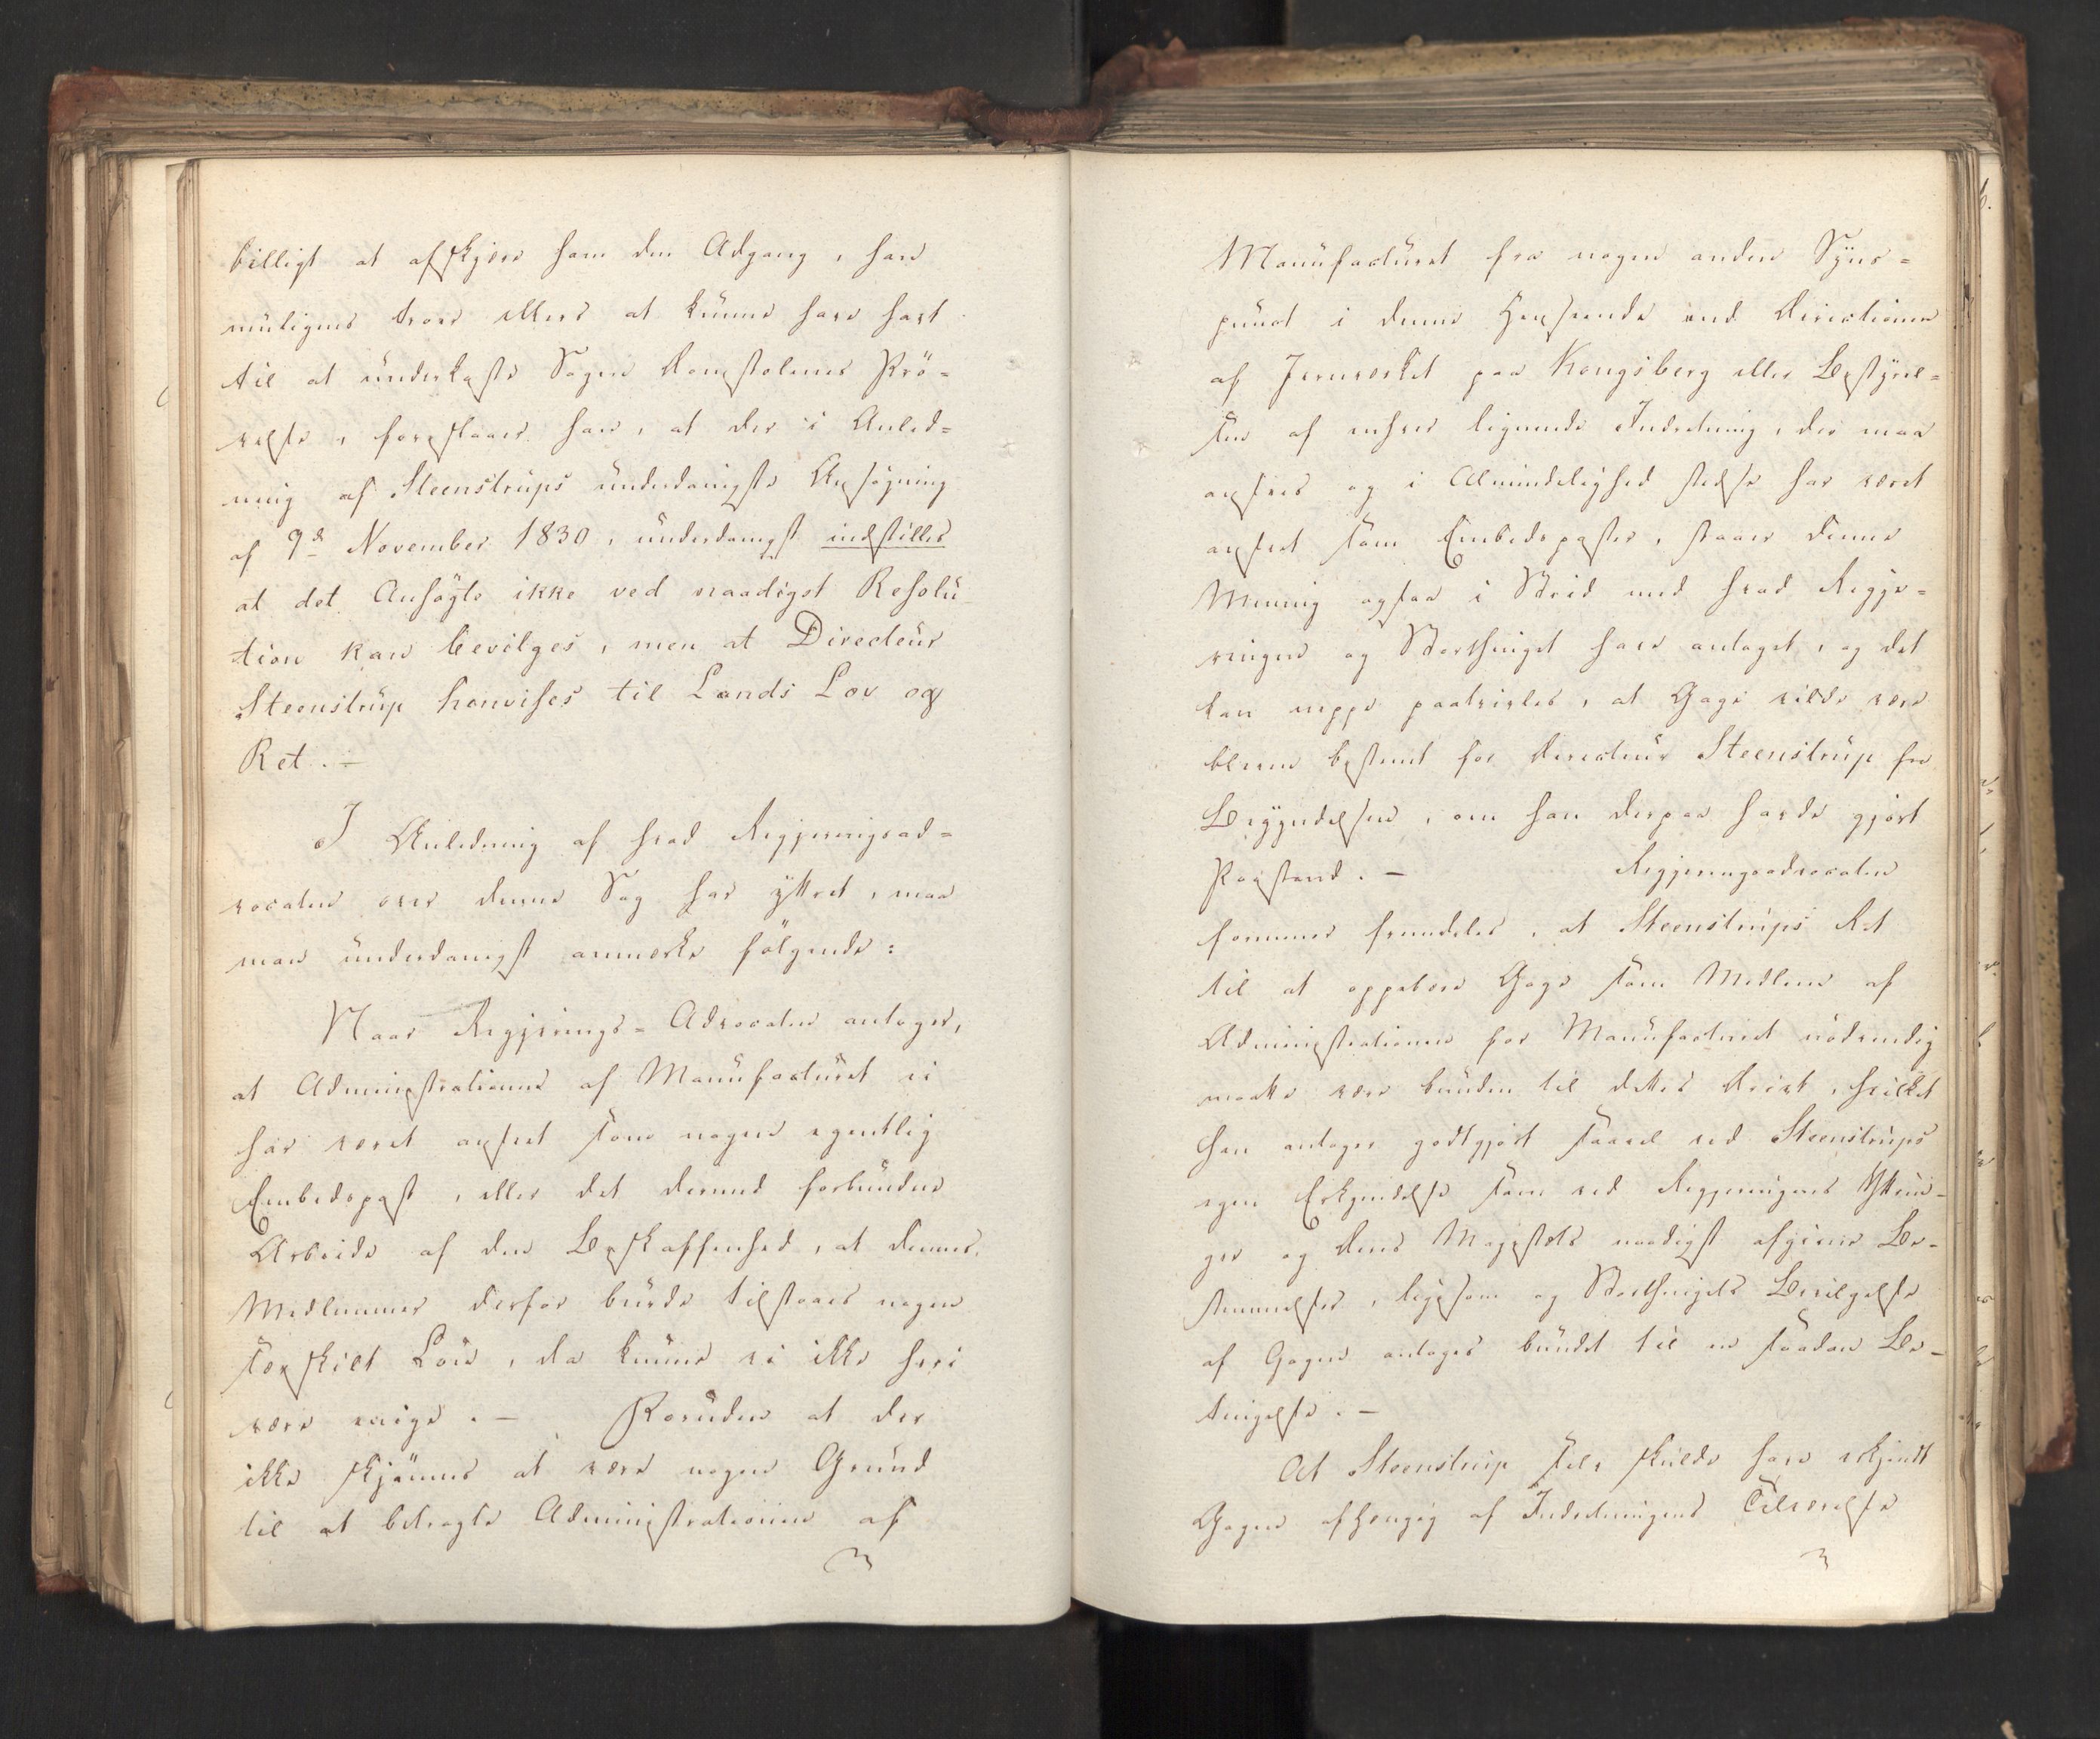 billigt at afskjære ham den Adgang, han
muligens troer ellers at kunne have havt
til at underkaste Sagen Domstolenes Prö=
velse, foreslaaer han, at der i Anled=
ning af Steenstrups underdanigste Ansøgning
af 9de November 1830, underdanigst indstilles
at det Ansögte ikke ved naadigst Resolu
tion kan bevilges, men at Directeur
Steenstrup henvises til Lands Lov og
Ret. –
I Anledning af hvad Regjeringsad=
vocaten over denne Sag har yttret, maa
man underdanigst anmærke fölgende:
Naar Regjerings=Advocaten antager,
at Administrationen af Manufacturet ei
har været anseet som nogen egentlig
Embedspost, eller det dermed forbundne
Arbeide af den Beskaffenhed, at dennes
Medlemmer derfor burde tilstaaes nogen
særskilt Lön, da kunne vi ikke heri
være enige. – Foruden at der
ikke skjönnes at være nogen Grund
til at betragte Administrationen af
Manufacturet fra nogen anden Syns=
punct i denne Henseende end Directionen
af Jernverket paa Kongsberg eller Bestyrel=
sen af enhver lignende Indretning, der maa
ansees og i Almindelighed stedse har været
anseet som Embedsposter, staaer denne
Mening ogsaa i Strid med hvad Regje=
ringen og Storthinget have antaget, og det
kan neppe paatvivles, at Gage vilde være
bleven bestemt for Directeur Steenstrup fra
Begyndelsen, om han derpaa havde gjort
Paastand. – Regjeringsadvocaten
formener fremdeles, at Steenstrups Ret
til at oppebære Gage som Medlem af
Administrationen for Manufacturet nödvendig
maatte være bunden til dettes Drivt, hvilket
han antager godtgjort saavel ved Steenstrups
egen Erkjendelse som ved Regjeringens Yttrin=
ger og Deres Majestæts naadigst afgivne Be=
stemmelser, ligesom og Storthingets Bevilgelse
af Gagen antages bundet til en saadan Be=
tingelse. –
At Steenstrup selv skulde have erkjendt
Gagen afhængig af Indretningens Tilværelse